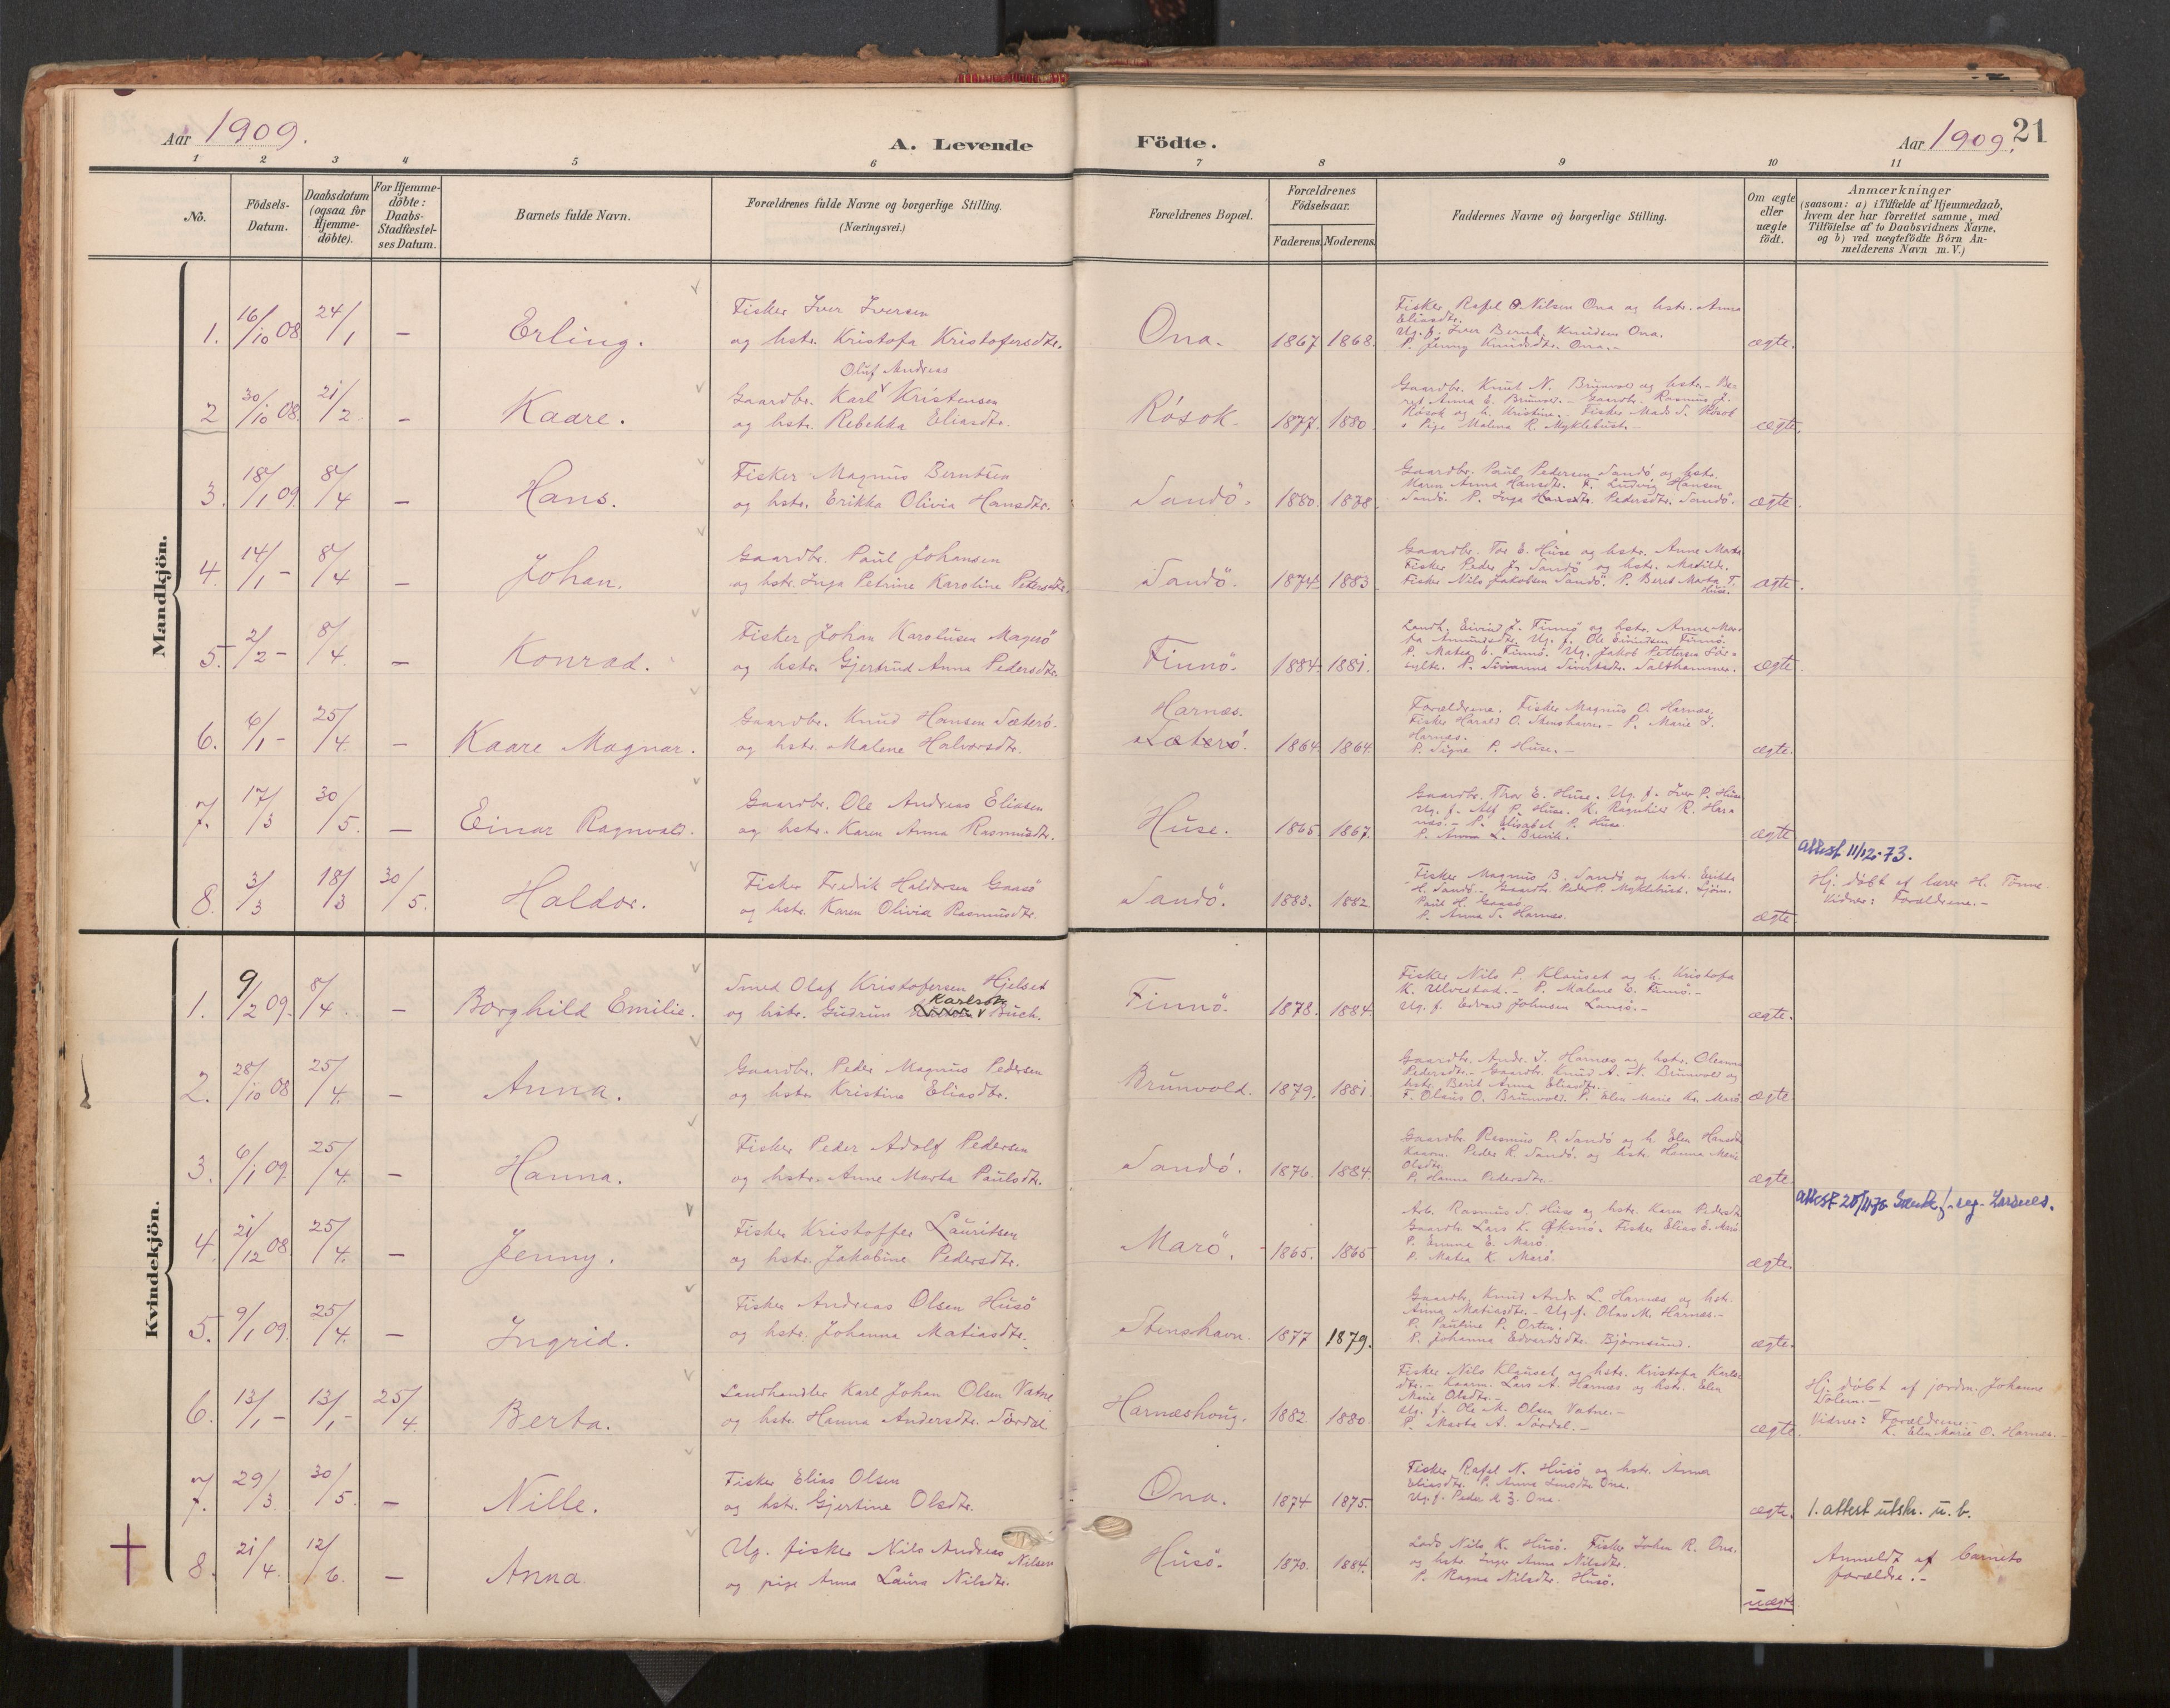 Aar 1909.
A. Levende Födte.
Aar 1909. 21
1 2 3 4 5 6 7 8 9 10 11
No.
Födsels-
Datum.
Daabsdatum
(ogsaa for
Hjemme-
döbte).
For Hjemme-
döbte:
Daabs-
Stadfæstel-
ses Datum.
Barnets fulde Navn.
Forældrenes fulde Navne og borgerlige Stilling.
(Næringsvei.)
Forældrenes Bopæl.
Forældrenes
Födselsaar.
Faderens. Moderens.
Faddernes Navne og borgerlige Stilling.
Om ægte
eller
uægte
födt.
Anmærkninger
(saasom: a) i Tilfælde af Hjemmedaab,
hvem der har forrettet samme, med
Tilföielse af to Daabsvidners Navne,
og b) ved uægtefödte Börn An-
melderens Navn m. V.)
Mandkjön.
1. 16/10 08 24/1 – Erling.
Fisker Iver Iversen
og hstr. Kristofa Kristofersdtr.
Ona. 1867 1868.
Fisker Rafel O. Nilsen Ona og hstr. Anna
Eliasdtr.
Ug. f. Iver Bernh. Knudsen Ona.
P. Jenny Knudsdtr. Ona.-
ægte.
2 30/10 08. 21/2 – Kaare.
Oluf Andreas
Gaardbr. Karl Kristensen
og hstr. Rebekka Eliasdtr.
Rósok. 1877. 1880.
Gaardbr. Knut N. Brunvold og hstr. - Be-
ret Anna E. Brunvold. - Gaardbr. Rasmus J.
Rósok og h. Kristine. - Fisker Mads S. Rósok
o Pige Malena R. Myklebust.-
ægte.
3. 18/1 09. 8/4 – Hans.
Fisker Magnus Berntsen
og hstr. Erikka Olivia Hansdtr.
Sandö. 1880. 1878.
Gaardbr. Paul Pedersen Sandö og hstr.
Maren Anna Hansdtr. F. Ludvig Hansen
Sandö. P. Inga Hansdtr. Pedersdtr. Sandö.
ægte.
4. 14/1 - 8/4 – Johan.
Gaardbr. Paul Johansen
og hstr. Inga Petrine Karoline Petersdtr.
Sandö. 1874. 1883.
Gaardbr. Tor E. Huse og hstr. Anne Marta
Fisker Peder J. Sandö og hstr. Matilde.
Fisker Nils Jakobsen Sandö. P. Beret Marta T.
Huse.
ægte.
5. 2/2 - 8/4. – Konrad.
Fisker Johan Karolusen Magnö
og hstr. Gjertrud Anna Pedersdtr.
Finnö. 1884. 1881.
Landh. Eivind J. Finnö og hstr. Anne Mar-
ta Amundsdtr. Ug. f. Ole Eivindsen Finnö.
P. Matea E. Finnö. Ug. Jakob Pettersen Sör-
sylte. P. Sivianna Sivertsdtr. Salthammer.
ægte.
6. 6/1 - 25/4. – Kaare Magnar.
Gaardbr. Knud Hansen Sæterö.
og hstr. Malene Halvorsdtr.
Harnæs.
Sæterö. 1864. 1864.
Forældrene. Fisker Magnus O. Harnæs.
Fisker Harald O. Stenshavn. - P. Marie I.
Harnæs.
P. Signe P. Huse.-
ægte.
7. 17/3 30/5. – Einar Ragnvald.
Gaardbr. Ole Andreas Eliasen
og hstr. Karen Anna Rasmusdtr.
Huse. 1865. 1867.
Gaardbr. Thor E. Huse. Ug. f. Iver P. Huse
Ug. f. Alf P. Huse. K. Ragnhild R. Har-
næs. - P. Elisabet P. Huse.
P. Anna L. Brevik.
ægte
attest 11/12-73.
8. 3/3 18/3 30/5. Haldor.
Fisker Fredrik Haldorsen Gaasö
og hstr. Karen Olivia Rasmusdtr.
Sandö. 1883. 1882
Fisker Magnus B. Sandö og hstr. Erikka
H. Sandö. - Gaardbr. Peder P. Myklebust. Sjöm.
Paul H. Gaasö
P. Anna S. Harnæs.
ægte
Hj. döbt af lærer H. Tönne.
Vidner: Forældrene.-
Kvindekjön.
1. 9/2 09. 8/4. – Borghild Emilie.
Smed Olaf Kristofersen Hjelset
Karlsdtr.
og hstr. Gudrun Buch.
Finnö. 1878. 1884.
Fisker Nils P. Klauset og h. Kristofa
K. Ulvestad. - P. Malene E. Finnö.-
Ug. f. Edvard Johnsen Langö.-
ægte.
2. 28/10 08 25/4. – Anna.
Gaardbr. Peder Magnus Pedersen
og hstr. Kristine Eliasdtr.
Brunvold. 1879. 1881.
Gaardbr. Andr. I. Harnæs og hstr. Oleanna
Pedersdtr. - Gaardbr. Knud A. N. Brunvold og
hstr. Berit Anna Eliasdtr.
F. Olaus O. Brunvold. P. Elen Marie Kr. Marö.
ægte.
3. 6/1 09. 25/4. – Hanna.
Fisker Peder Adolf Pedersen
og hstr. Anne Marta Paulsdtr.
Sandö. 1876. 1884.
Gaardbr. Rasmus P. Sandö og h. Elen Hansdtr
Kaarm. Peder R. Sandö. og hstr. Hanna Marie
Olsdtr.
P. Hanna Pedersdtr.
ægte
4. 21/12 08 25/4. – Jenny.
Fisker Kristoffer Lauritsen
og hstr. Jakobine Pedersdtr.
Marö. 1865. 1865
Arb. Rasmus S. Huse og hstr. Karen Pedersdtr
Gaardbr. Lars K. Øksnö. Fisker Elias E. Marö
P. Emma E. Marö
P. Matea K. Marö.
ægte.
5. 9/1 09. 25/4. – Ingrid.
Fisker Andreas Olsen Husö
og hstr. Johanna Matiasdtr.
Stenshavn. 1877 1879.
Gaardbr. Knud Andr. L. Harnæs og hstr.
Anna Matiasdtr. - Ug. f. Olas M. Harnæs.-
P. Pauline P. Orten.
P. Johanna Edvardsdtr. Björnsund.
ægte.
6. 13/1 - 13/1 - 25/4. Berta.
Landhandler Karl Johan Olsen Vatne
og hstr. Hanna Andersdtr. Sördal
Harnæshoug. 1882. 1880.
Fisker Nils Klauset og hstr. Kristofa Karls-
dtr. - Kaarm. Lars A. Harnæs og hstr. Elen
Marie Olsdtr.-
Ug. f. Ole M. Olsen Vatne.-
P. Marta A. Sördal.-
ægte.
Hj. döbt af jordm. Johanne
Solem.-
Vidner: Forældrene.-
K. Elen Marie O. Harnæs.-
7. 29/3. 30/5. – Nille.
Fisker Elias Olsen
og hstr. Gjertine Olsdtr.
Ona. 1874 1875.
Fisker Rafel N. Husö og hstr. Anna
Eliasdtr. P. Anna Ona.
Ug. f. Peder Ona.
ægte.
1. attest utskr. u. b.
8. 21/4. 12/6. – Anna
Ug. fisker Nils Andreas
Nilsen
og pige Anna Laura Nilsdtr.
Husö. 1870. 1884.
Lods Nils K. Husö. Fisker Johan R. Ona.
og hstr. Inger Anna Nilsdtr.
P. Ragna Nilsdtr. Husö.
uægte
Anmeldt af barnets
forældre.-